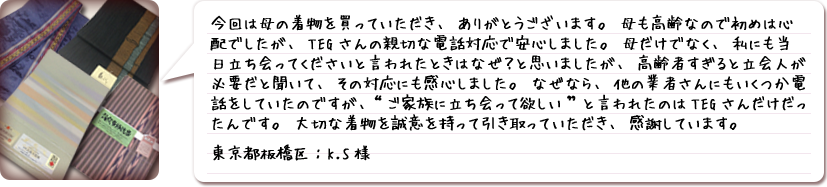 今回は母の着物を買っていただき、ありがとうございます。母も高齢なので初めは心
配でしたが、TEGさんの親切な電話対応で安心しました。母だけでなく、私にも当
日立ち会ってくださいと言われたときはなぜ?と思いましたが、高齢者すぎると立会人が
必要だと聞いて、その対応にも感心しました。なぜなら、他の業者さんにもいくつか電
話をしていたのですが、“ご家族に立ち会って欲しい”と言われたのはTEGさんだけだっ
たんです。大切な着物を誠意を持って引き取っていただき、感謝しています。
東京都板橋区;K.S様